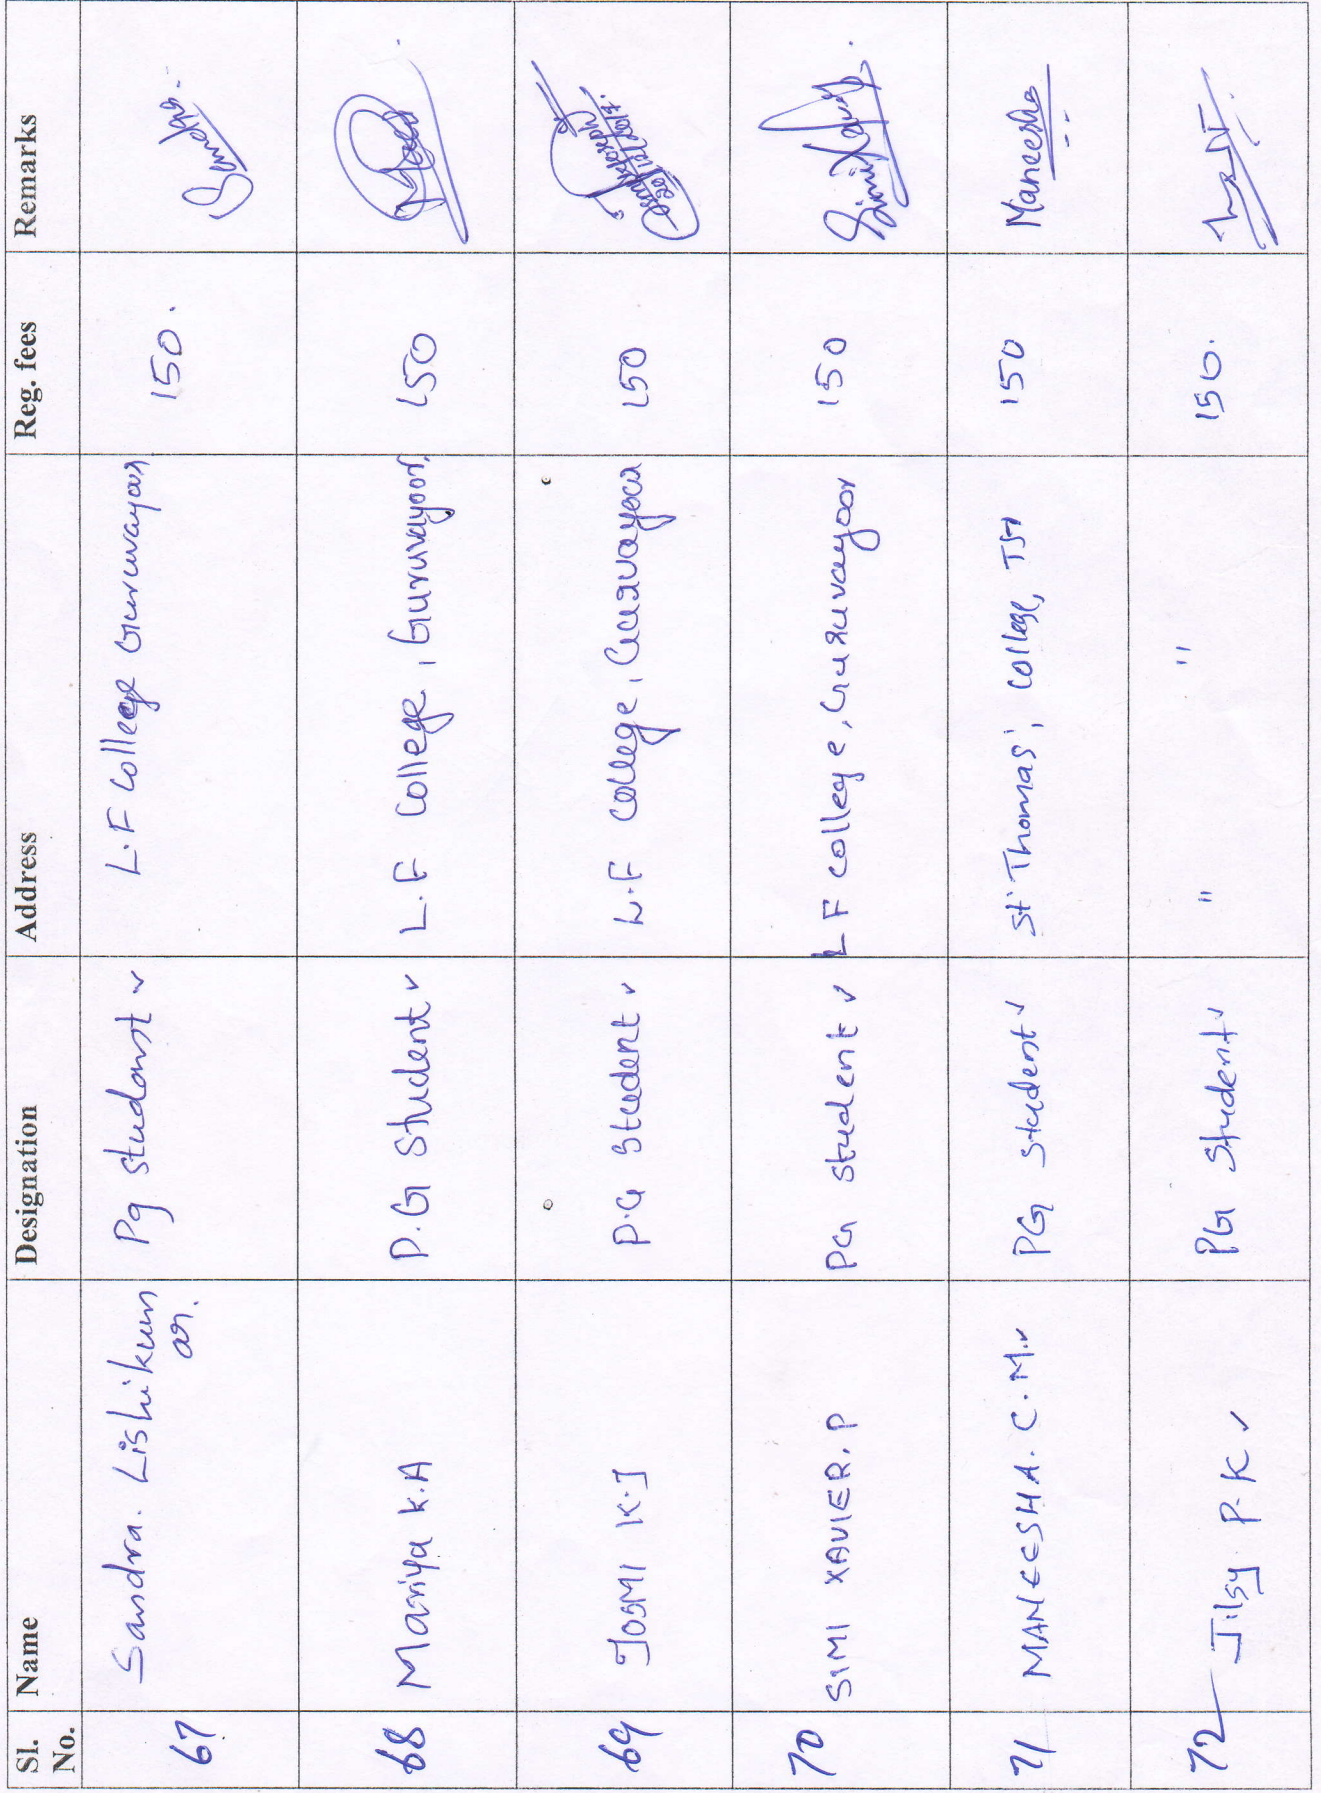 Sl. No. Name Designation Address Reg. fees Remarks
67 Sandra. Lishikumar. Pg student L.F College Guruvayoor 150. Sandra.
68 Mariya K.A P.G Student L.F College, Guruvayoor, 150
69 JOSMI K.J P.G Student L.F College, Guruvayoor 150
70 SIMI XAVIER. P PG student LF college, Guruvayoor 150 Simi Xavier.
71 MANEESHA. C. M. PG student St' Thomas', College, TSR 150 Maneesha
72 Jilsy P. K PG Student " " 150.